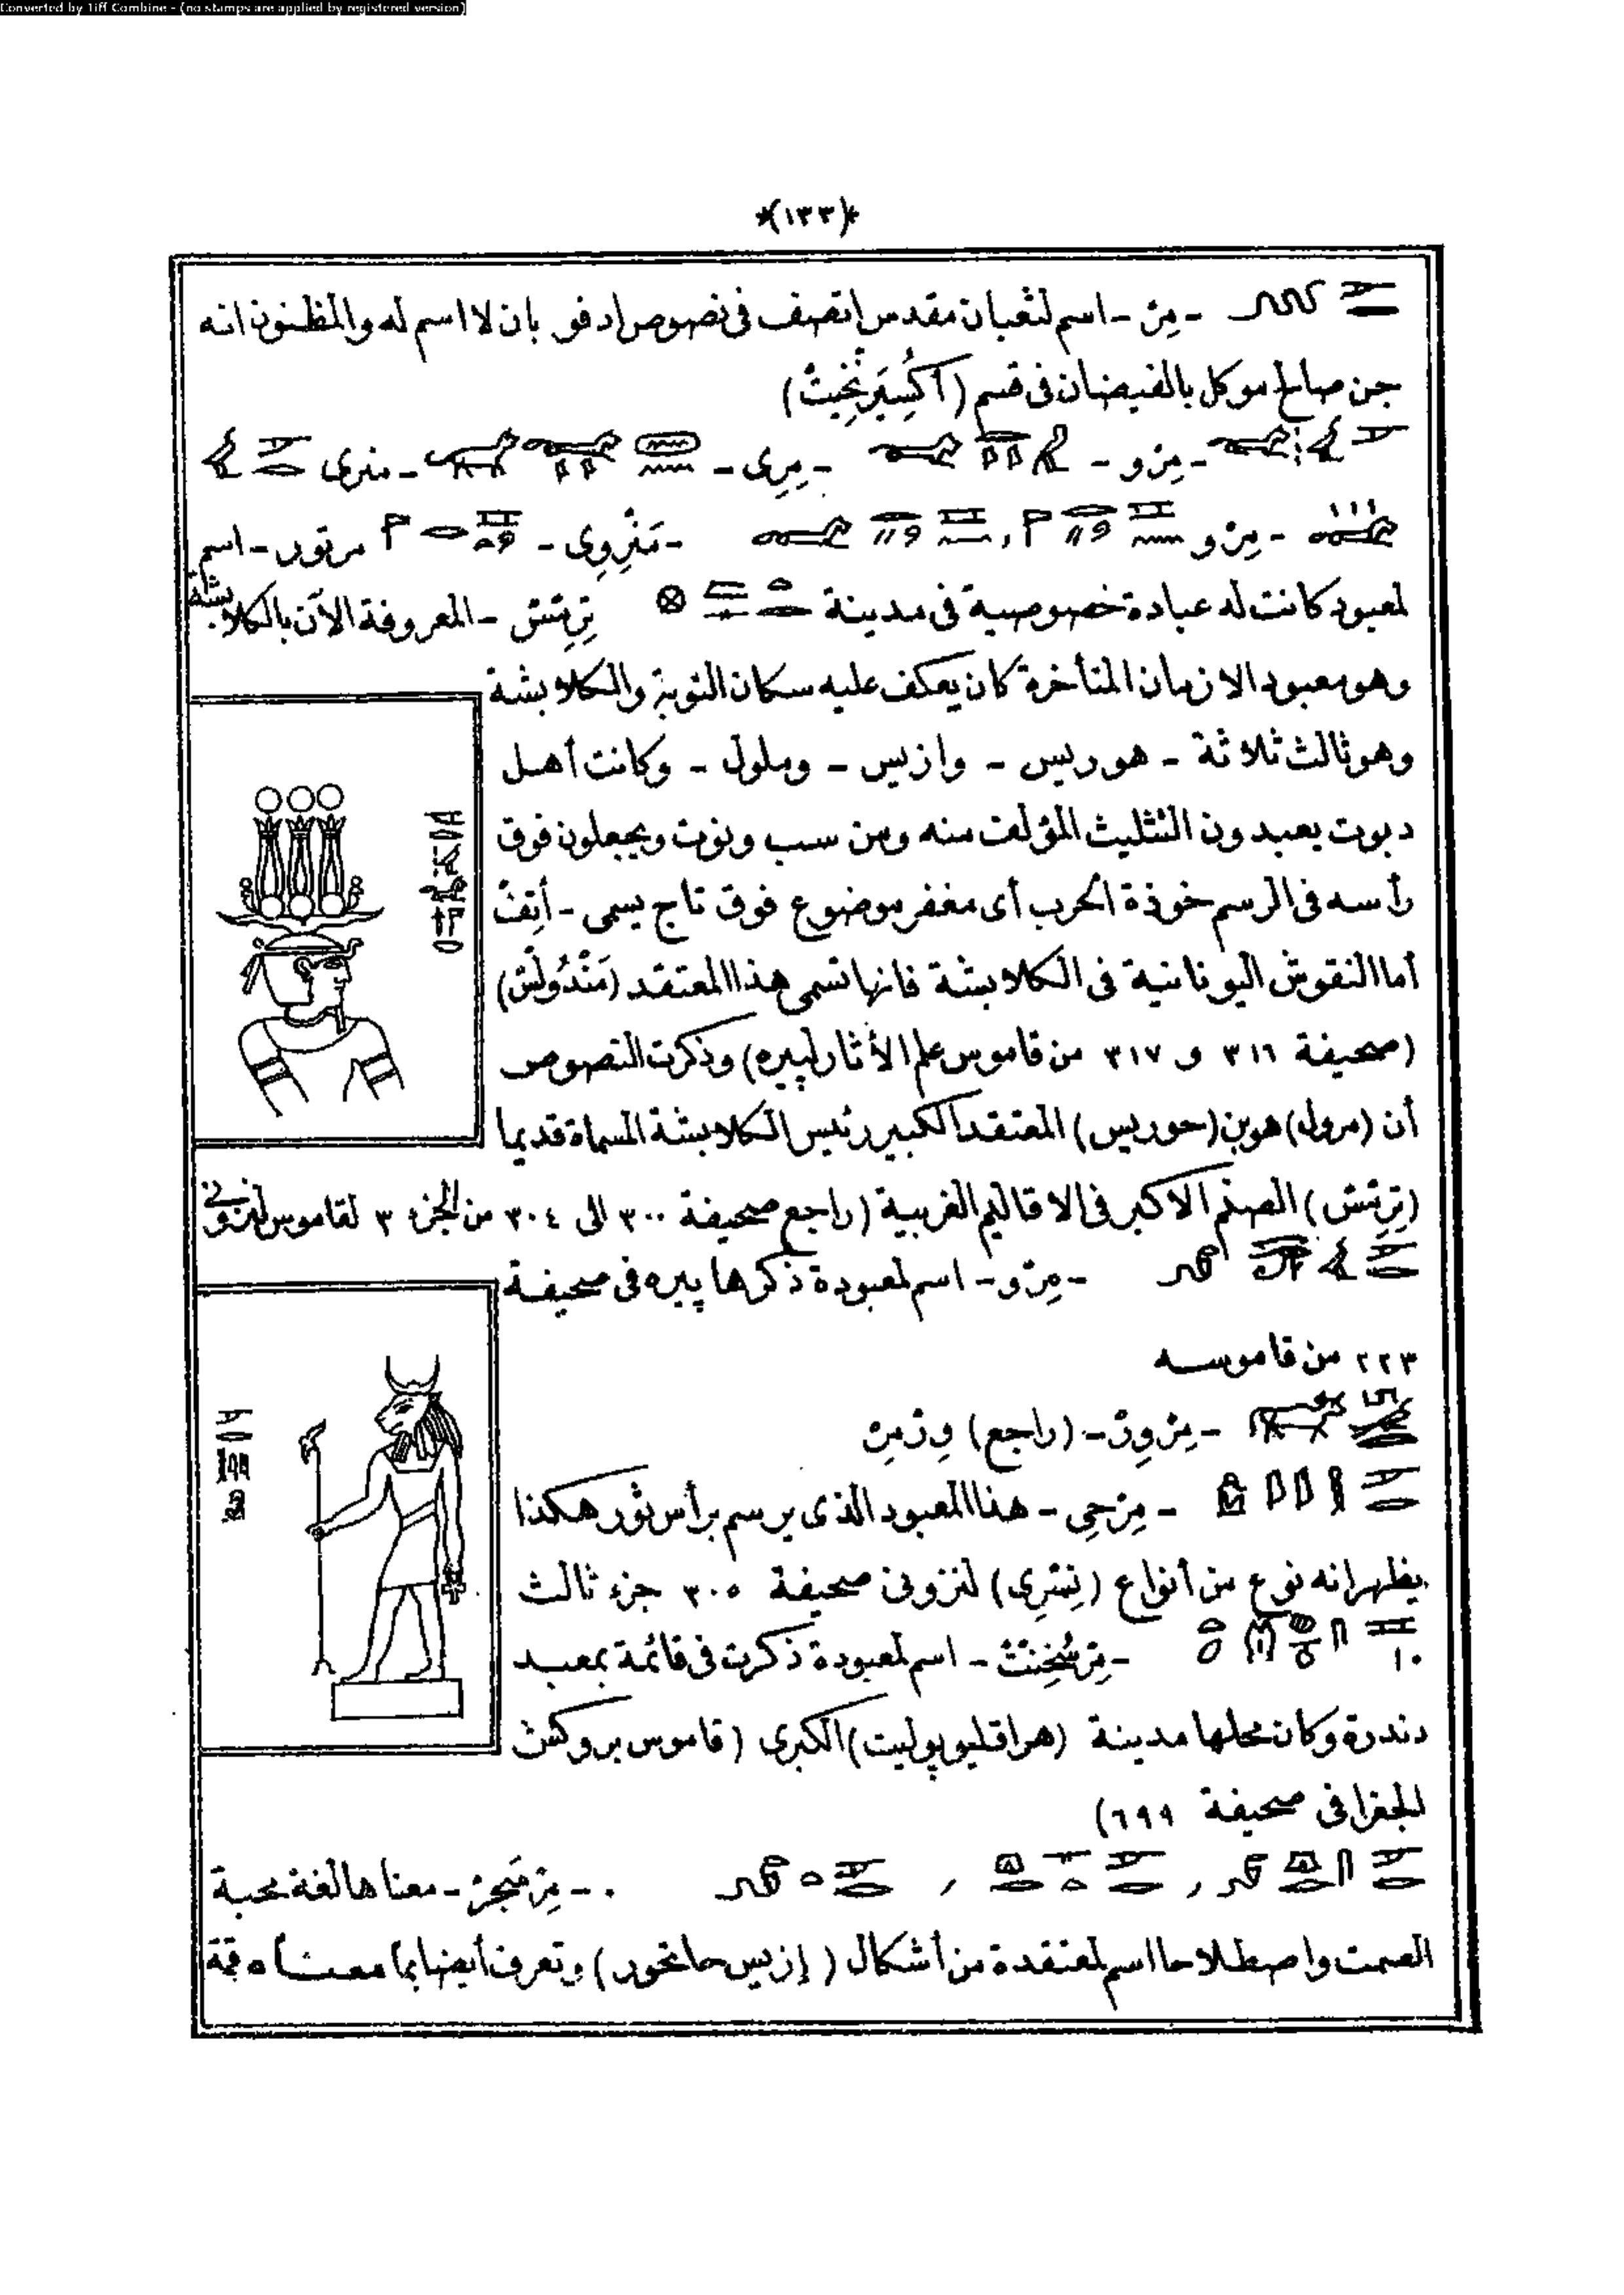 Converted by Tiff Combine - (no stamps are applied by registered version)
*(١٣٣)*
- مِرْ - اسم لثعبان مقدس اتصف فى نصوص ادفو بان لا اسم له والمظنون انه
جن صالح موكل بالفيضان فى قسم (اُكْسِيَرِنْخِيتْ)
- مِرْو - - مِرِى - - منرى
- مِرْو - مَنْرِوِى - مرتور - اسم
لمعبود كانت له عبادة خصوصية فى مدينة تِرِمْسْ - المعروفة الآن بالكلابشة
وهو معبود الازمان المتأخرة كان يعكف عليه سكان النوبة والكلابشة
وهو ثالث ثلاثة - هوريس - وازيس - وملول - وكانت أهل
دبوت يعبدون التثليث المؤلف منه ومن سب ونوت ويجعلون فوق
رأسه فى الرسم خوذة الحرب أى مغفر موضوع فوق تاج يسمى - أَتِفْ
أما النقوش اليونانية فى الكلابشة فانها تسمى هذا المعتقد (مَنْدُولِسْ)
(صحيفة ٣١٦ و ٣١٧ من قاموس علم الأثار لپيره) وذكرت النصوص
أن (مرول) هو بن (حوريس) المعتقد الكبير رئيس الكلابشة المسماة قديما
(تِرِمْسْ) الصنم الاكبر فى الاقاليم الغربية (راجع صحيفة ٣٠٠ الى ٣٠٤ من الجزء ٣ لقاموس لنزونى
- مِرْو - اسم لمعبودة ذكرها پيره فى صحيفة
٢٢٣ من قاموسه
- مِرْوِرْ - (راجع) وِرْمِرْ
- مِرْحِى - هذا المعبود الذى يرسم برأس ثور هكذا
يظهر انه نوع من أنواع (نِسْرِى) لنزونى صحيفة ٣٠٥ جزء ثالث
- مِرْسُخِنْتْ - اسم لمعبودة ذكرت فى قائمة بمعبد
دندرة وكان محلها مدينة (هراقليوپوليت) الكبرى (قاموس بروكش
الجغرافى صحيفة ٦٩٩)
- مِرْسَجِرْ - معناها لغة محبة
الصمت واصطلاحا اسم لمعتقدة من أشكال (إزيس حاتحور) وتعرف أيضا بما معناه قمة